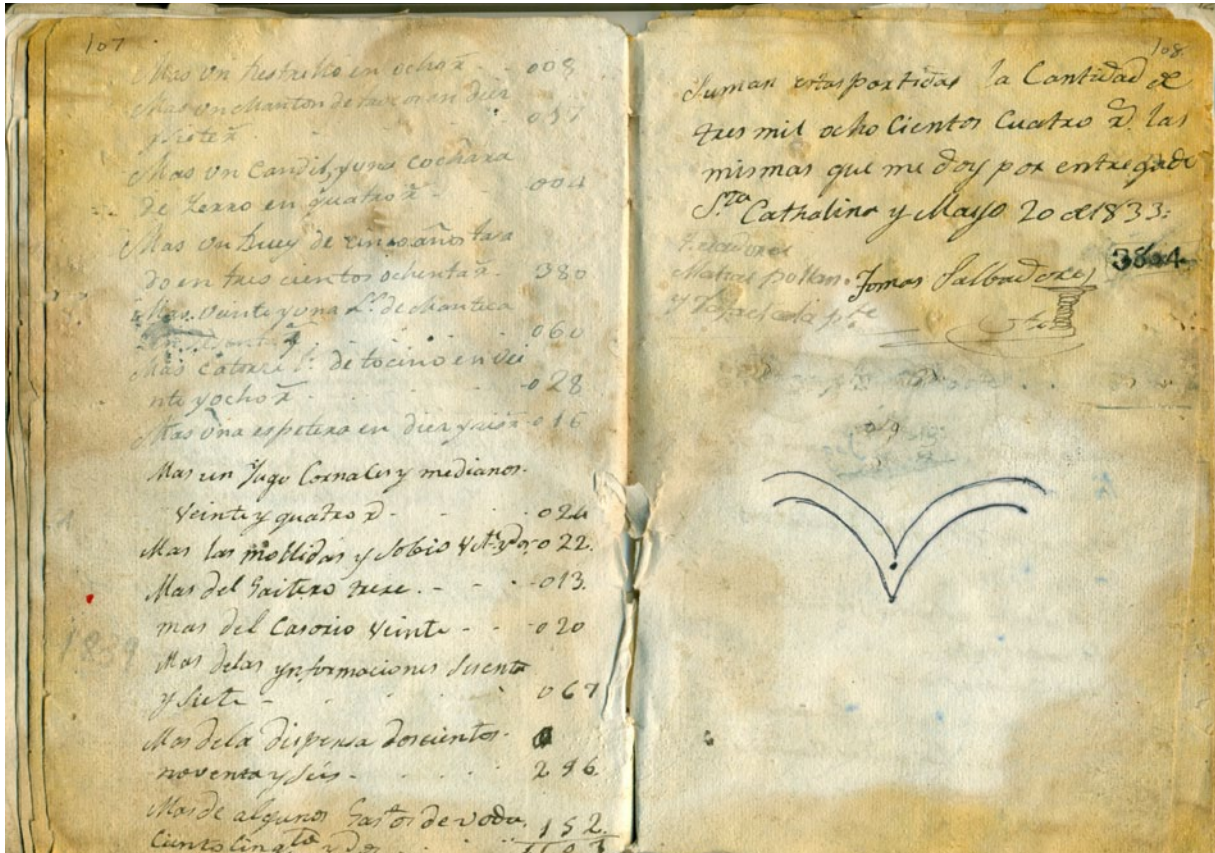 107
Mas un Restrillo en ocho rs - - 008
Mas un Manton de en diez
y siete rs 017
Mas un Candil, y una cochara
de Yerro en quatro rs - 004
Mas un Buey de cinco años tasa
do en tres cientos ochenta rs - 380
Mas veinte y una Ls. de Manteca
060
Mas catorze Ls: de tocino en vei
nte y ocho rs - - - 028
Mas una espetera en diez y seis - 016
Mas un Jugo Cornales y medianos -
Veinte y quatro rs - - - - 024
Mas las mollidas y sobio 022.
Mas del Gaitero treze. - - - 013.
mas del Casorio Veinte - - - 020
Mas delas ynformaciones Sesenta
y Siete - - - 067
Mas dela dispensa doscientos -
noventa y Seis - - - - 296.
Mas de algunos Gastos de voda,
Ciento Cinqta y dos 152.
108
Suman estas partidas la Cantidad de
tres mil ocho Cientos Cuatro rs. las
mismas que me doy por entregado
Sta Cathalina y Mayo 20 de 1833:
3804
Matias pollan. Tomas Salbadores
y Rafael dela pte
1839